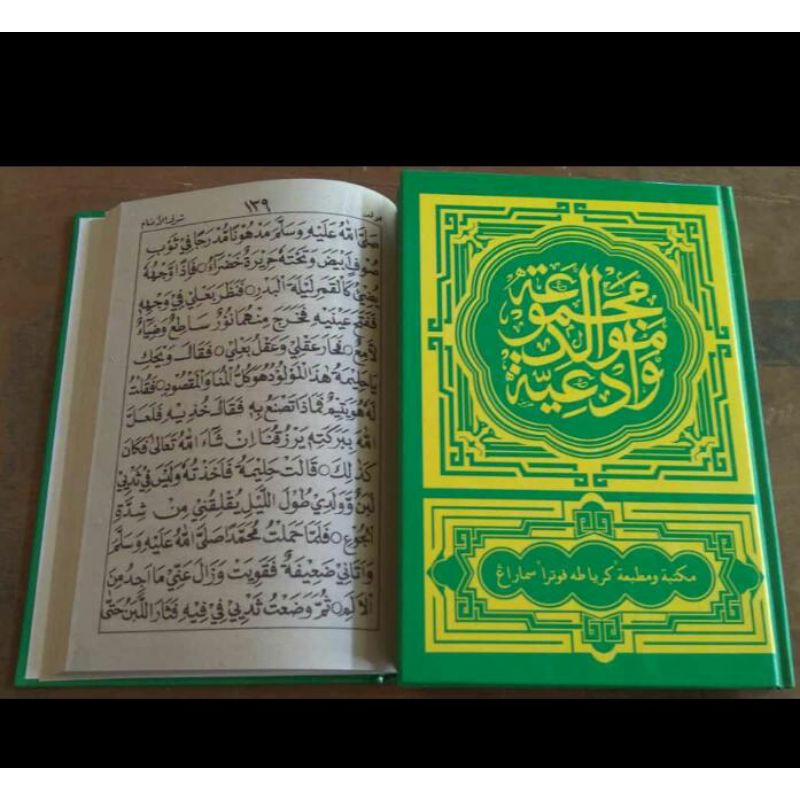 ١٣٩
شرف الأنام
صَلَّى اللهُ عَلَيْهِ وَسَلَّمَ مَدْهُونًا مُدْرَجًا فِيْ ثَوْبِ
صُوْفٍ أَبْيَضَ وَتَحْتَهُ حَرِيْرَةٌ خَضْرَاءُ ○ فَإِذَا وَجْهُهُ
يُضِيْءُ كَالْقَمَرِ لَيْلَةَ الْبَدْرِ ○ فَنَظَرَ بَعْلِيْ فِيْ وَجْهِهِ
فَفَتَحَ عَيْنَيْهِ فَخَرَجَ مِنْهُمَا نُوْرٌ سَاطِعٌ وَضِيَاءٌ
لَامِعٌ ○ فَحَارَ عَقْلِيْ وَعَقْلُ بَعْلِيْ ○ فَقَالَ وَيْحَكِ
يَا حَلِيْمَةُ هٰذَا الْمَوْلُوْدُ هُوَ كُلُّ الْمُنَا وَالْمَقْصُوْدِ ○ فَقُلْتُ
لَهُ هُوَ يَتِيْمٌ فَمَاذَا تَصْنَعُ بِهِ فَقَالَ خُذِيْهِ فَلَعَلَّ
اللهَ بِبَرَكَتِهِ يَرْزُقُنَا اِنْ شَاءَ اللهُ تَعَالَى فَكَانَ
كَذٰلِكَ ○ قَالَتْ حَلِيْمَةُ فَاَخَذْتُهُ وَلَيْسَ فِيْ ثَدْيِيْ
لَبَنٌ وَوَلَدِيْ طُوْلَ اللَّيْلِ يُقْلِقُنِيْ مِنْ شِدَّةِ
الْجُوْعِ ○ فَلَمَّا حَمَلْتُ مُحَمَّدًا صَلَّى اللهُ عَلَيْهِ وَسَلَّمَ
وَاَنَا ضَعِيْفَةٌ فَقَوِيْتُ وَزَالَ عَنِّيْ مَا اَجِدُ مِنَ
الْاَلَمِ ○ ثُمَّ وَضَعْتُ ثَدْيِيْ فِيْ فِيْهِ فَثَارَ اللَّبَنُ حَتَّى
مجموعة
موالد
وأدعية
مكتبة ومطبعة كرياطه فوترا سماراغ